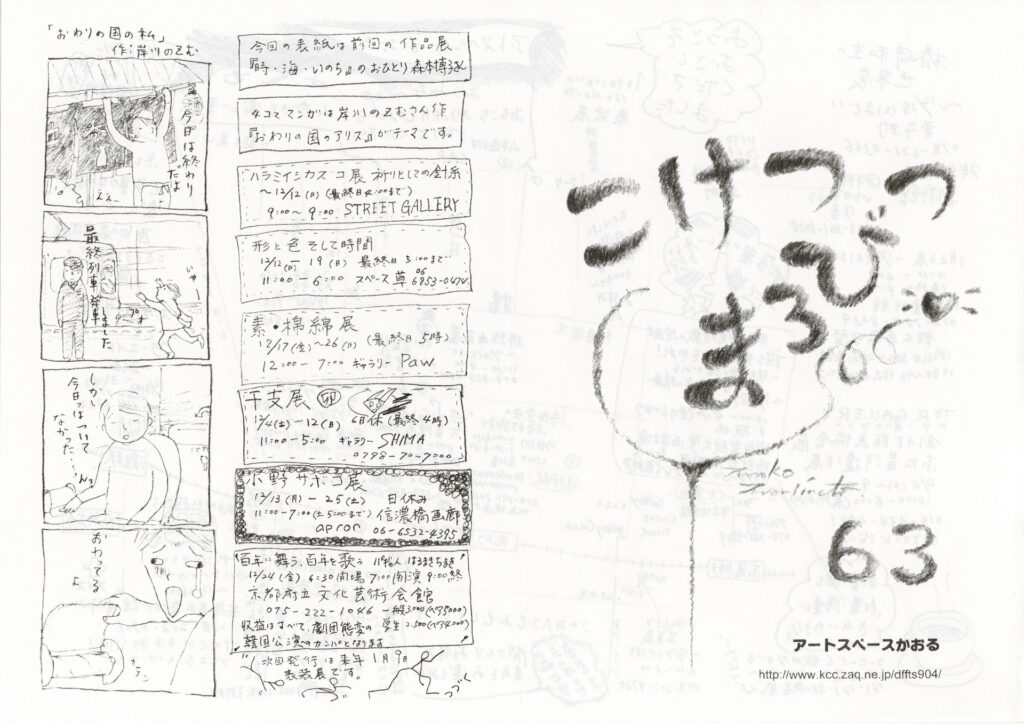 「おわりの国の私」
作:岸川のえむ
今日は終わり
だよ
ええー
最終列車発車
しました
いやー
しかし
今日はついて
なかった…
おわってる
よ
今回の表紙は前回の作品展
『時・海・いのち』のおひとり森本博子さん
4コママンガは岸川のえむさん作
『おわりの国のアリス』がテマです。
ハラミイシカズコ展 祈りとしての針糸
〜12/12(日)(最終日4:00まで)
9:00〜9:00 STREET GALLERY
形と色 そして時間
12/12(日)−19(日) 最終日5:00まで
11:00−6:00 スペース草 06 6853-0474
素・棉綿展
12/17(金)〜26(日) (最終日5時)
12:00−7:00 ギャラリー Paw
干支展 卯
12/4(土)−12(日) 6日休(最終4時)
11:00−5:00 ギャラリー SHIMA
0798-70-7000
小野サボコ展
12/13(月)−25(土) 日休み
11:00-7:00(土5:00まで) 信濃橋画廊
apron 06-6532-4395
百年に舞う、百年を歌う
12/24(金) 6:30開場 7:00開演 9:00終
京都府立文化芸術会館
075-222-1046 一般3,000
収益はすべて、劇団態変の 学生2,500
韓国公演のカンパとなります
次回発行は来年1月9日
表装展です。
つづく
こけつつ
まろびつ
63
アートスペースかおる
http://www.kcc.zaq.ne.jp/dffts904/